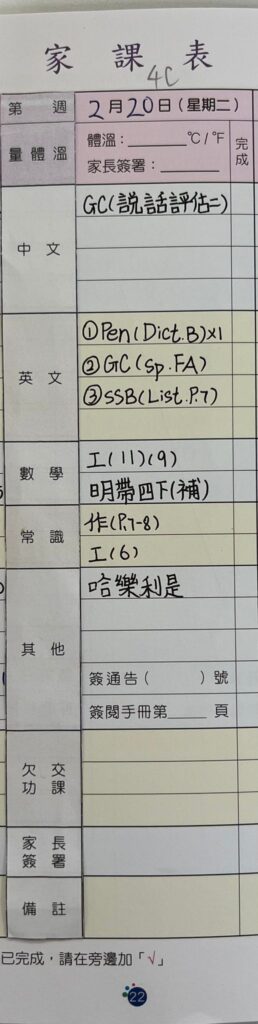 家 課 表
4C
第 週 2月20日(星期二)
量體溫 體溫:______℃/℉ 完成
家長簽署:______
中 文 GC(説話評估二)
英 文 ①Pen(Dict.B)x1
②GC(Sp.FA)
③SSB(List.P.7)
數 學 工(11)(9)
明帶四下(補)
常 識 作(P.7-8)
工(6)
其 他 哈樂利是
簽通告( )號
簽閱手冊第____頁
欠 交
功 課
家 長
簽 署
備 註
已完成,請在旁邊加「√」
22